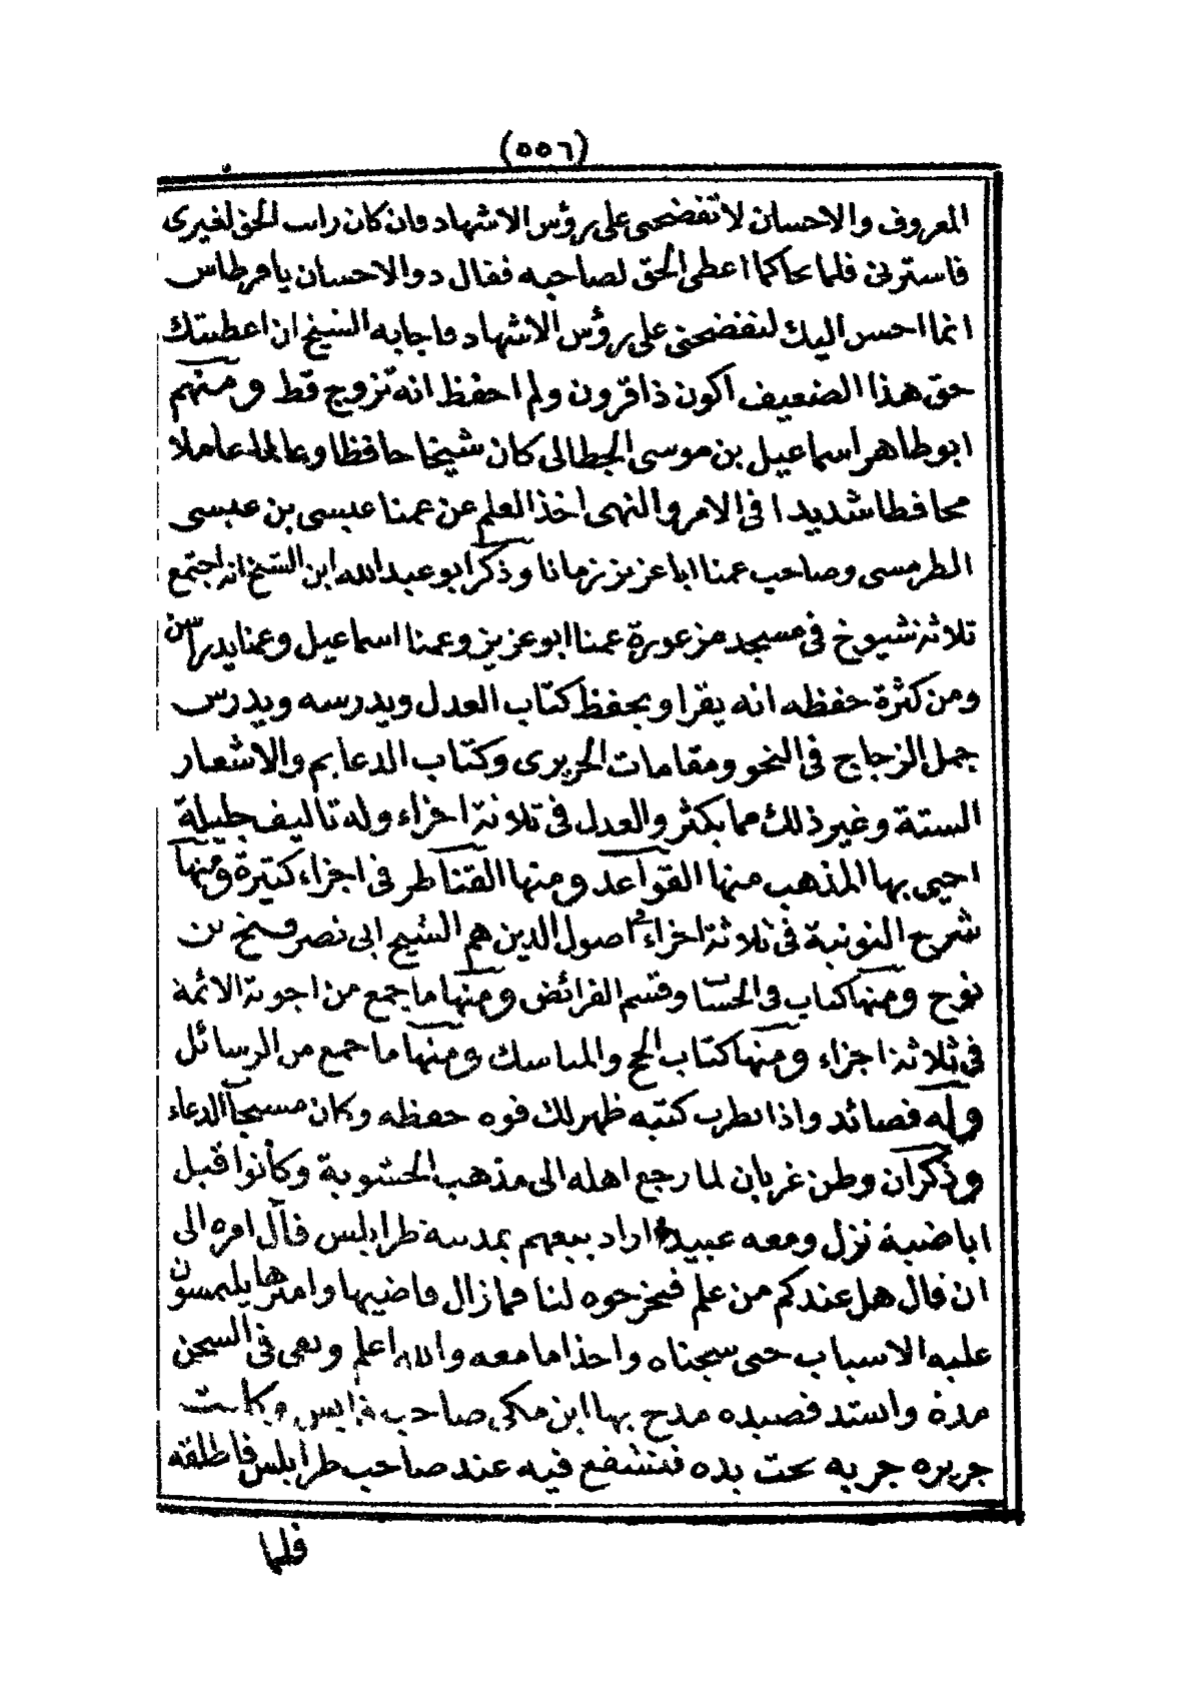 (٥٥٦)
المعروف والاحسان لا تفضحنى على رؤس الاشهاد وان كان رايت الحق لغيرى
فاسترنى فلما تحاكما اعطى الحق لصاحبه فقال ذو الاحسان يا فرطاس
انما احسن اليك لتفضحنى على رؤس الاشهاد فاجابه الشيخ ان اعطيتك
حق هذا الضعيف اكون ذا قرون ولم احفظ انه تزوج قط ومنهم
ابو طاهر اسماعيل بن موسى الجطالى كان شيخا حافظا وعالما عاملا
محافظا شديدا فى الامر والنهى اخذ العلم عن عمنا عيسى بن عيسى
الطرمسى وصاحب عمنا ابا عزيز زمانا وذكر ابو عبد الله ابن الشيخ انه اجتمع
ثلاثة شيوخ فى مسجد مزعورة عمنا ابو عزيز وعمنا اسماعيل وعمنا يدراسن
ومن كثرة حفظه انه يقرا ويحفظ كتاب العدل ويدرسه ويدرس
جمل الزجاج فى النحو ومقامات الحريرى وكتاب الدعايم والاشعار
الستة وغير ذلك مما يكثر والعدل فى ثلاثة اجزاء وله تاليف جليلة
احيى بها المذهب منها القواعد ومنها القناطر فى اجزاء كثيرة ومنها
شرح النونية فى ثلاثة اجزاء فى اصول الدين هم الشيخ ابى نصر فتح بن
نوح ومنها كتاب فى الحساب وقسم الفرائض ومنها ما جمع من اجوبة الائمة
فى ثلاثة اجزاء ومنها كتاب الحج والمناسك ومنها ما جمع من الرسائل
وله قصائد واذا نظرت كتبه ظهر لك قوة حفظه وكان مستجاب الدعاء
وذكر ان وطن غريان لما رجع اهله الى مذهب الحشوية وكانوا قبل
اباضية نزل ومعه عبيد اراد بيعهم بمدينة طرابلس فآل امره الى
ان قال هل عندكم من علم فتخرجوه لنا فما زال قاضيها وامرها يلتمسون
عليه الاسباب حتى سجناه واخذا ما معه والله اعلم وبقى فى السجن
مدة وانشد قصيدة مدح بها ابن مكى صاحب قابس وكانت
جزيرة جربة تحت يده فتشفع فيه عند صاحب طرابلس فاطلقه
فلما